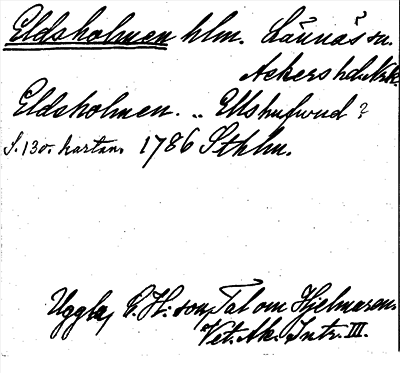 Eldsholmen hlm. Lännäs sn.
Askers hd. Nrk.
Eldsholmen. „ Ulfshufwud ?
S. 130. kartan. 1786 Sthlm.
Uggla, C. H:son, Tal om Hjelmaren.
Vet. Ak. Intr. III.